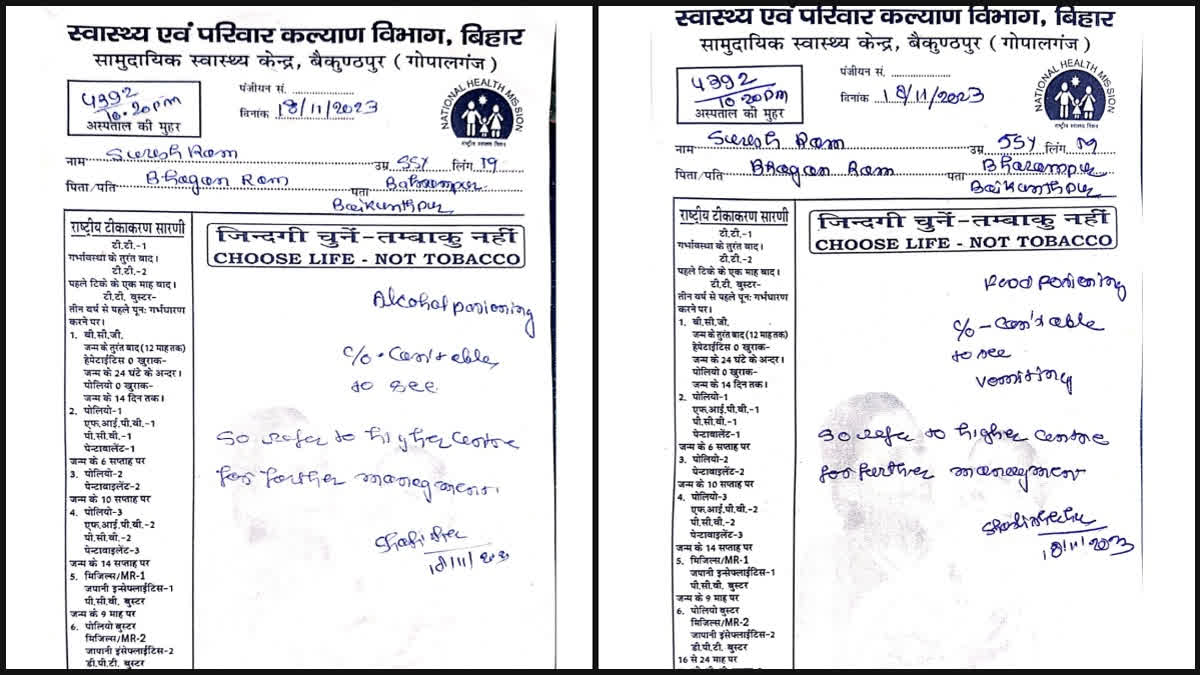 स्वास्थ्य एवं परिवार कल्याण विभाग, बिहार
सामुदायिक स्वास्थ्य केन्द्र, बैकुण्ठपुर ( गोपालगंज )
4992
10.20pm
अस्पताल की मुहर
पंजीयन सं. ....................
दिनांक 18/11/2023
NATIONAL HEALTH MISSION
राष्ट्रीय स्वास्थ्य मिशन
नाम Suresh Ram उम्र 55Y लिंग M
पिता/पति Bhagan Ram पता
Baikunthpur
राष्ट्रीय टीकाकरण सारणी
टी.टी.-1
गर्भावस्था के तुरंत बाद।
टी.टी.-2
पहले टिके के एक माह बाद।
टी.टी. बुस्टर-
तीन वर्ष से पहले पून: गर्भधारण
करने पर।
1. बी.सी.जी.
जन्म के तुरंत बाद (12 माह तक)
हेपेटाईटिस 0 खुराक-
जन्म के 24 घंटे के अन्दर।
पोलियो 0 खुराक-
जन्म के 14 दिन तक।
2. पोलियो-1
एफ.आई.पी.वी.-1
पी.सी.वी.-1
पेन्टावालेंट-1
जन्म के 6 सप्ताह पर
3. पोलियो-2
पेन्टावाइलेंट-2
जन्म के 10 सप्ताह पर
4. पोलियो-3
एफ.आई.पी.वी.-2
पी.सी.वी.-2
पेन्टावाइलेंट-3
जन्म के 14 सप्ताह पर
5. मिजिल्स/MR-1
जापानी इन्सेफ्लाईटिस-1
पी.सी.वी. बुस्टर
जन्म के 9 माह पर
6. पोलियो बुस्टर
मिजिल्स/MR-2
जापानी इंसेफ्लाईटिस-2
डी.पी.टी. बुस्टर
जिन्दगी चुनें-तम्बाकु नहीं
CHOOSE LIFE - NOT TOBACCO
Alcohol poisioning
c/o - Can't able
to see
so refer to higher centre
for further managment.
18/11/2023
स्वास्थ्य एवं परिवार कल्याण विभाग, बिहार
सामुदायिक स्वास्थ्य केन्द्र, बैकुण्ठपुर ( गोपालगंज )
4992
10.20pm
अस्पताल की मुहर
पंजीयन सं. ....................
दिनांक 18/11/2023
NATIONAL HEALTH MISSION
राष्ट्रीय स्वास्थ्य मिशन
नाम Suresh Ram उम्र 55Y लिंग M
पिता/पति Bhagan Ram पता
Baikunthpur
राष्ट्रीय टीकाकरण सारणी
टी.टी.-1
गर्भावस्था के तुरंत बाद।
टी.टी.-2
पहले टिके के एक माह बाद।
टी.टी. बुस्टर-
तीन वर्ष से पहले पून: गर्भधारण
करने पर।
1. बी.सी.जी.
जन्म के तुरंत बाद (12 माह तक)
हेपेटाईटिस 0 खुराक-
जन्म के 24 घंटे के अन्दर।
पोलियो 0 खुराक-
जन्म के 14 दिन तक।
2. पोलियो-1
एफ.आई.पी.वी.-1
पी.सी.वी.-1
पेन्टावालेंट-1
जन्म के 6 सप्ताह पर
3. पोलियो-2
पेन्टावाइलेंट-2
जन्म के 10 सप्ताह पर
4. पोलियो-3
एफ.आई.पी.वी.-2
पी.सी.वी.-2
पेन्टावाइलेंट-3
जन्म के 14 सप्ताह पर
5. मिजिल्स/MR-1
जापानी इन्सेफ्लाईटिस-1
पी.सी.वी. बुस्टर
जन्म के 9 माह पर
6. पोलियो बुस्टर
मिजिल्स/MR-2
जापानी इंसेफ्लाईटिस-2
डी.पी.टी. बुस्टर
16 से 24 माह पर
जिन्दगी चुनें-तम्बाकु नहीं
CHOOSE LIFE - NOT TOBACCO
Food poisioning
c/o - Can't able
to see
vomitting
so refer to higher centre
for further managment
18/11/2023